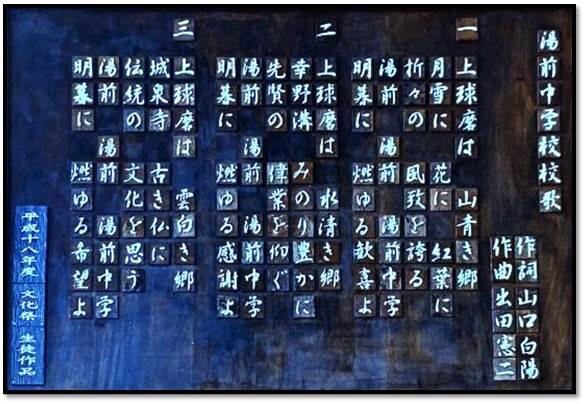 湯前中学校校歌
作詞 山口白陽
作曲 出田憲二
一
上球磨は 山青き郷
月雪に 花に 紅葉に
折々の 風致を誇る
湯前 湯前 湯前中学
明暮に 燃ゆる歓喜よ
二
上球磨は 水清き郷
幸野溝 みのり豊かに
先賢の 偉業を仰ぐ
湯前 湯前 湯前中学
明暮に 燃ゆる感謝よ
三
上球磨は 雲白き郷
城泉寺 古き仏に
伝統の 文化を思う
湯前 湯前 湯前中学
明暮に 燃ゆる希望よ
平成十八年度 文化祭 生徒作品